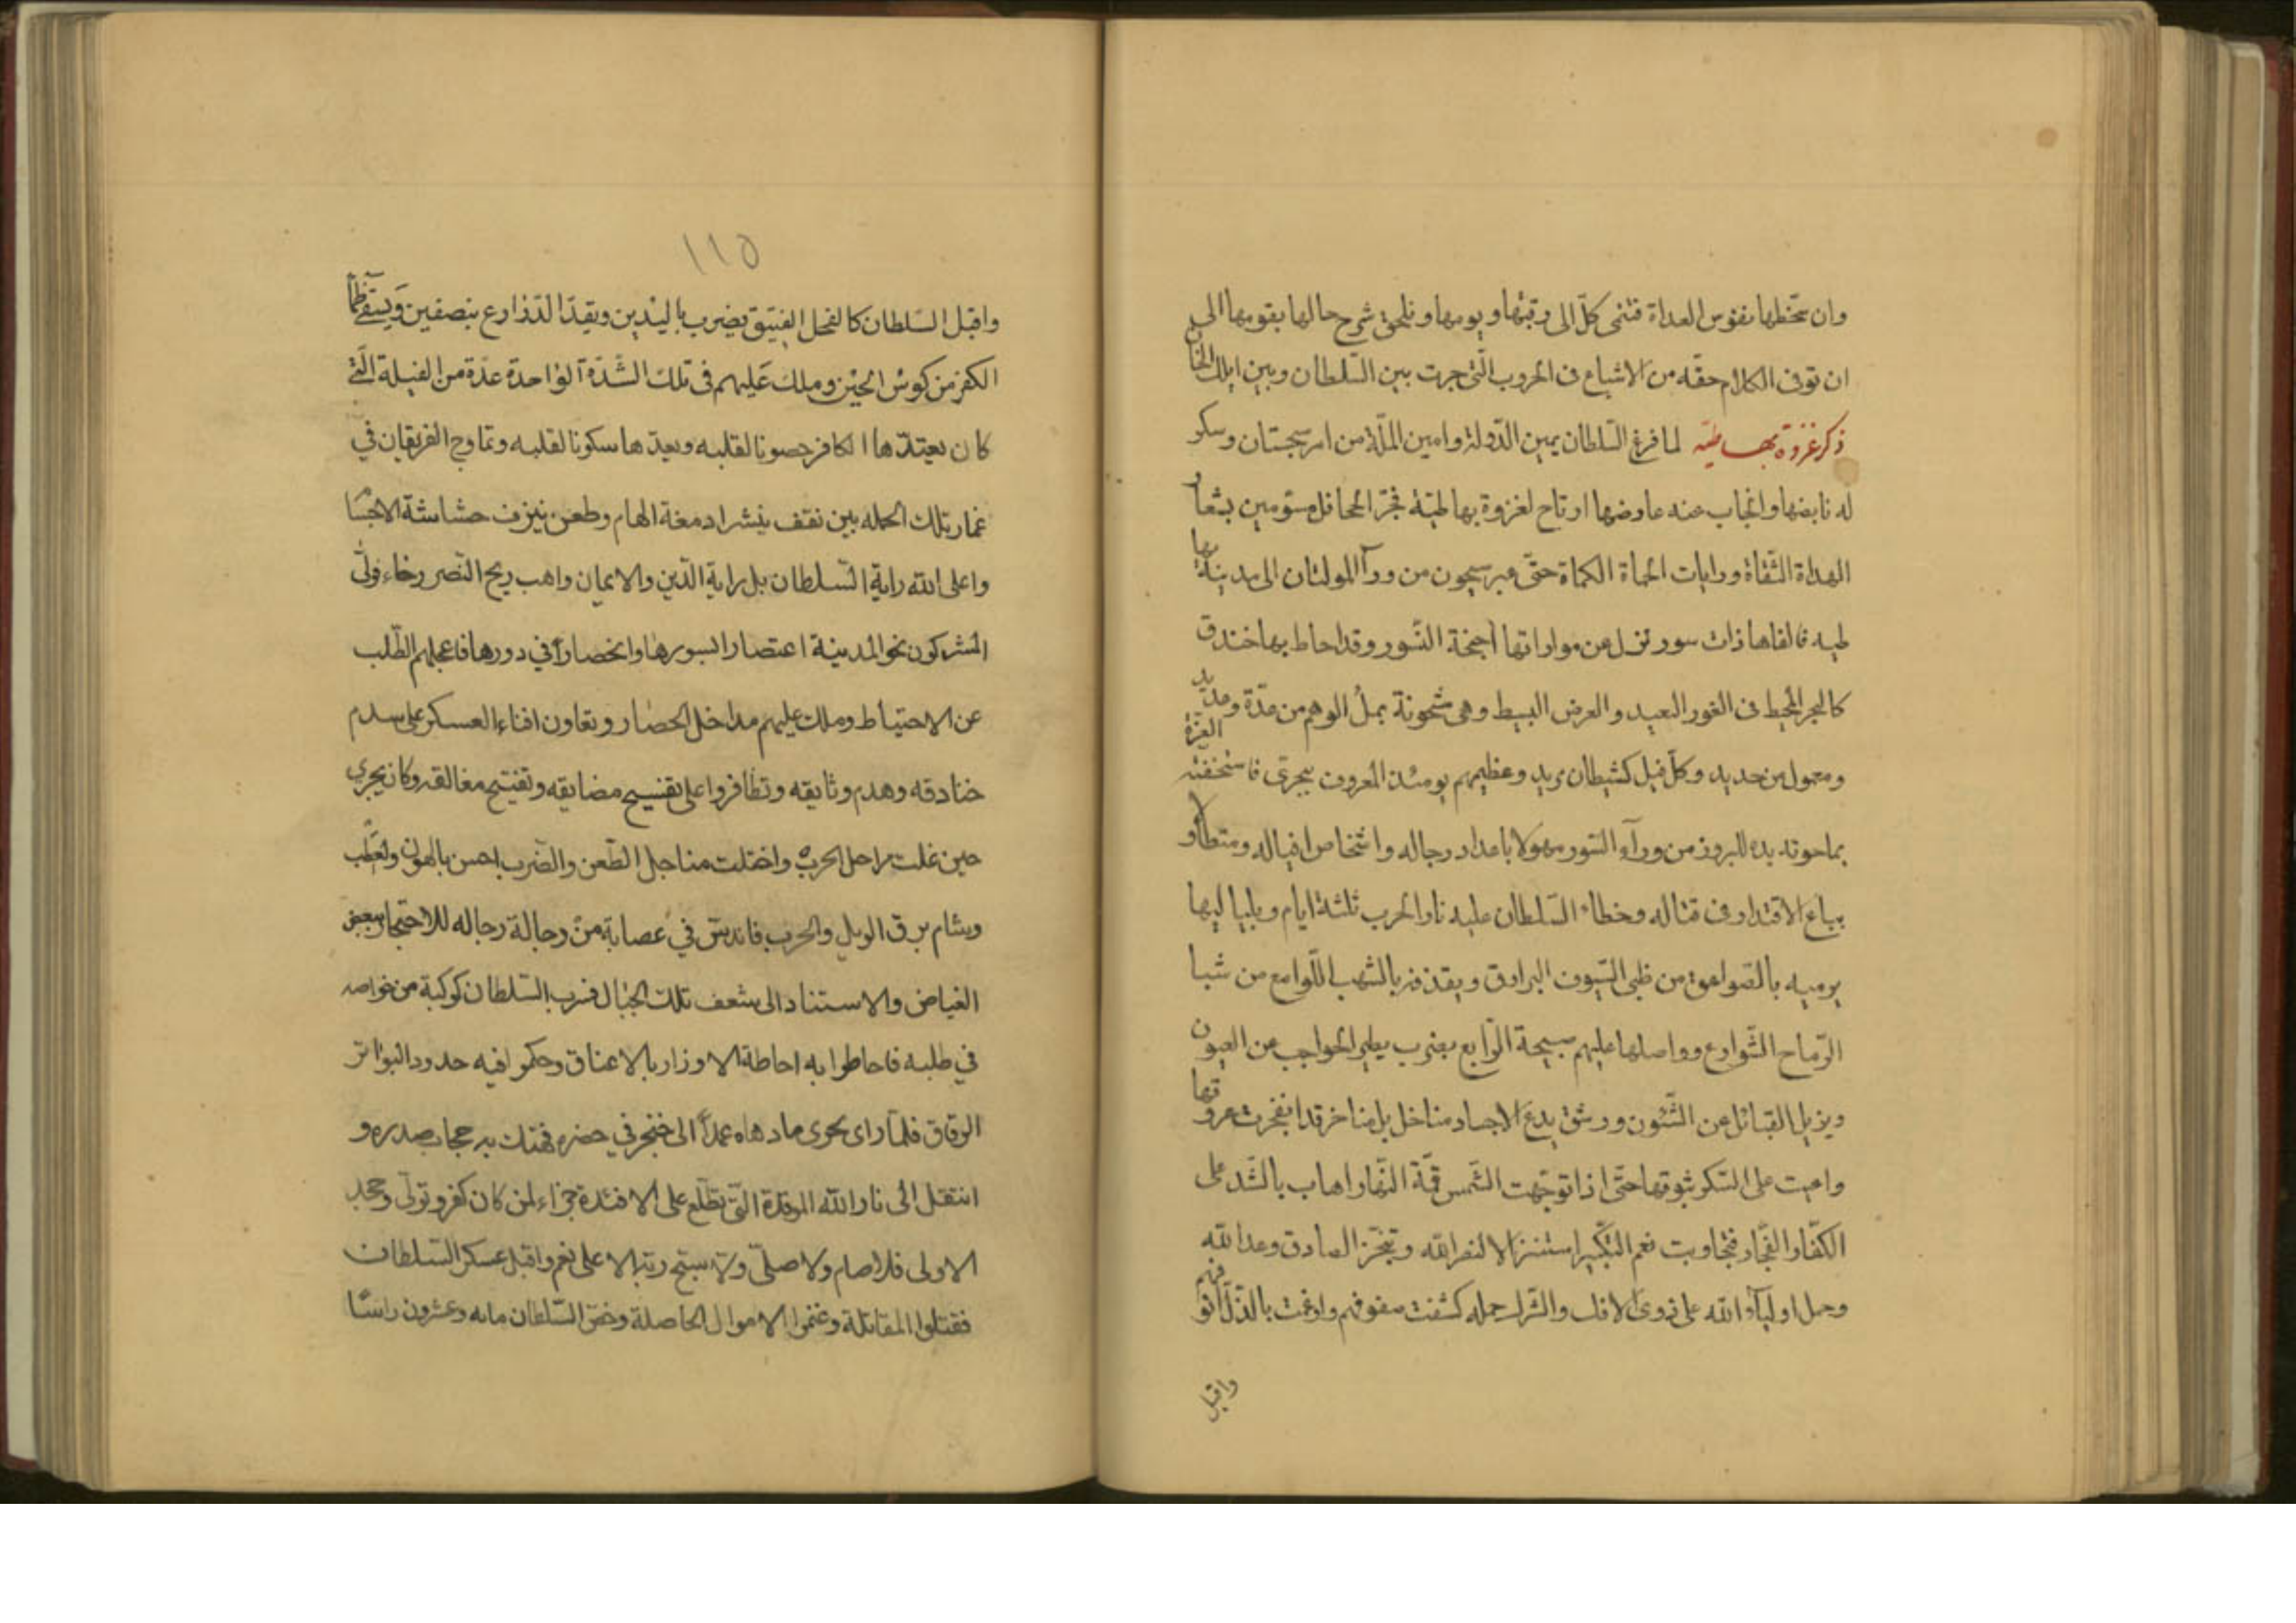 وان سخطها نفوس العداة فتنى كلّ الى رقبتها ويومها ونلحق شرح حالها بقومها الى
ان توفى الكلام حقه من الاشباع فى الحروب الّتى جرت بين السّلطان وبين ايلك الخان
ذكر غزوة بهاطيّه لما فرغ السّلطان يمين الدّولة وامين الملّة من امر سجستان وسكن
له نابضها وانجاب عنه عارضها ارتاح لغزوة بهاطيّة فجرّ الجحافل مسّومين بشعار
الهداة الثّقاة ورايات الحماة الكماة حتّى عبر سيحون من ورآ المولتان الى مدينة بها
طيه فالفاها ذات سور تزل عن موازاتها اجنحة النّسور وقد احاط بها خندق
كالبحر المحيط فى الغور البعيد والعرض البسيط وهى مشحونة بملُ الوهم من عدّة وعديد
ومعمول من حديد وكلّ فيل كشيطان مريد وعظيمهم يومئذ المعروف ببجرى فاستخفته العزّة
بما حوته يده للبروز من ورآء السّور مهولا باعداد رجاله واشخاص افياله ومتطاولا
بباع الاقتدار فى قتاله وخطاء السّلطان عليه نار الحرب ثلثة ايام وبلياليها
يرميه بالصّواعق من ظبى السّيوف البوارق ويقذفه بالشهب اللّوامع من شبا
الرّماح الشّوارع وواصلها عليهم صبيحة الرّابع بضرب يطير الحواجب عن العيون
ويزيل القبائل عن الشّئون ورشق يدع الاجساد مناخل بل مناخر قد انفجرت عروقها
واعيت على السّكر شوقها حتّى اذا توجّهت الشّمس قمّة النّهار اهاب بالشّد على
الكفّار الفجّار فتجاوبت نعم التّكبير استنزالا لنصر الله وتنجّز الصادق وعد الله
وحمل اوليآء الله على ذوى الافك والشّرك حمله كشفت صفوفهم وارغمت بالذّلّ انوفهم
واقبل
١١٥
واقبل السّلطان كالفحل الفنيق يضرب باليدين ويقدّ الدّارع بنصفين ويستقى ظمأ
الكفر من كوس الحين وملك عليهم فى تلك الشّدّة الواحدة عدّة من الفيلة الّتى
كان يعتدّها الكافر حصونا لقلبه ويعدّها سكونا لقلبه وتماوج الفريقان في
غمار تلك الحمله بين نقف ينشر ادمغة الهام وطعن ينزف حشاشة الاجسا
واعلى الله راية السّلطان بل راية الدّين والايمان واهب ريح النّصر رخاء فولّى
المشركون نحو المدينة اعتصارا بسورها وانحصاراً في دورها فاعجلهم الطّلب
عن الاحتياط وملك عليهم مداخل الحصار وتعاون افناء العسكر على سدم
خنادقه وهدم وثايقه وتظافروا على تفسيح مضايقه وتفتيح مغالقه وكان بجرى
حين غلت مراجل الحرب واختلت مناجل الطّعن والضّرب احسن بالهون والعطب
وشام برق الويل والحرب فاندسّ في عصابة من رجالة رجاله للاحتجار ببعض
الغياض والاستناد الى شعف تلك الجبال فسرب السّلطان كوكبة من خواصه
في طلبه فاحاطوا به احاطة الاوزار بالاعناق وحكموا فيه حدود البواتر
الرقاق فلمّا راى بحرى ما دهاه عمداً الى خنجر في حضره فهتك به حجاب صدره و
انتقل الى نار الله الموقدة الّتى تطّلع على الافئدة جزاء لمن كان كفر وتولّى وجحد
الاولى فلا صام ولا صلّى ولا سبّح ربّه الاعلى نعم واقبل عسكر السّلطان
فقتلوا المقاتلة وغنموا الاموال الحاصلة وخصّ السّلطان مايه وعشرون راسًا